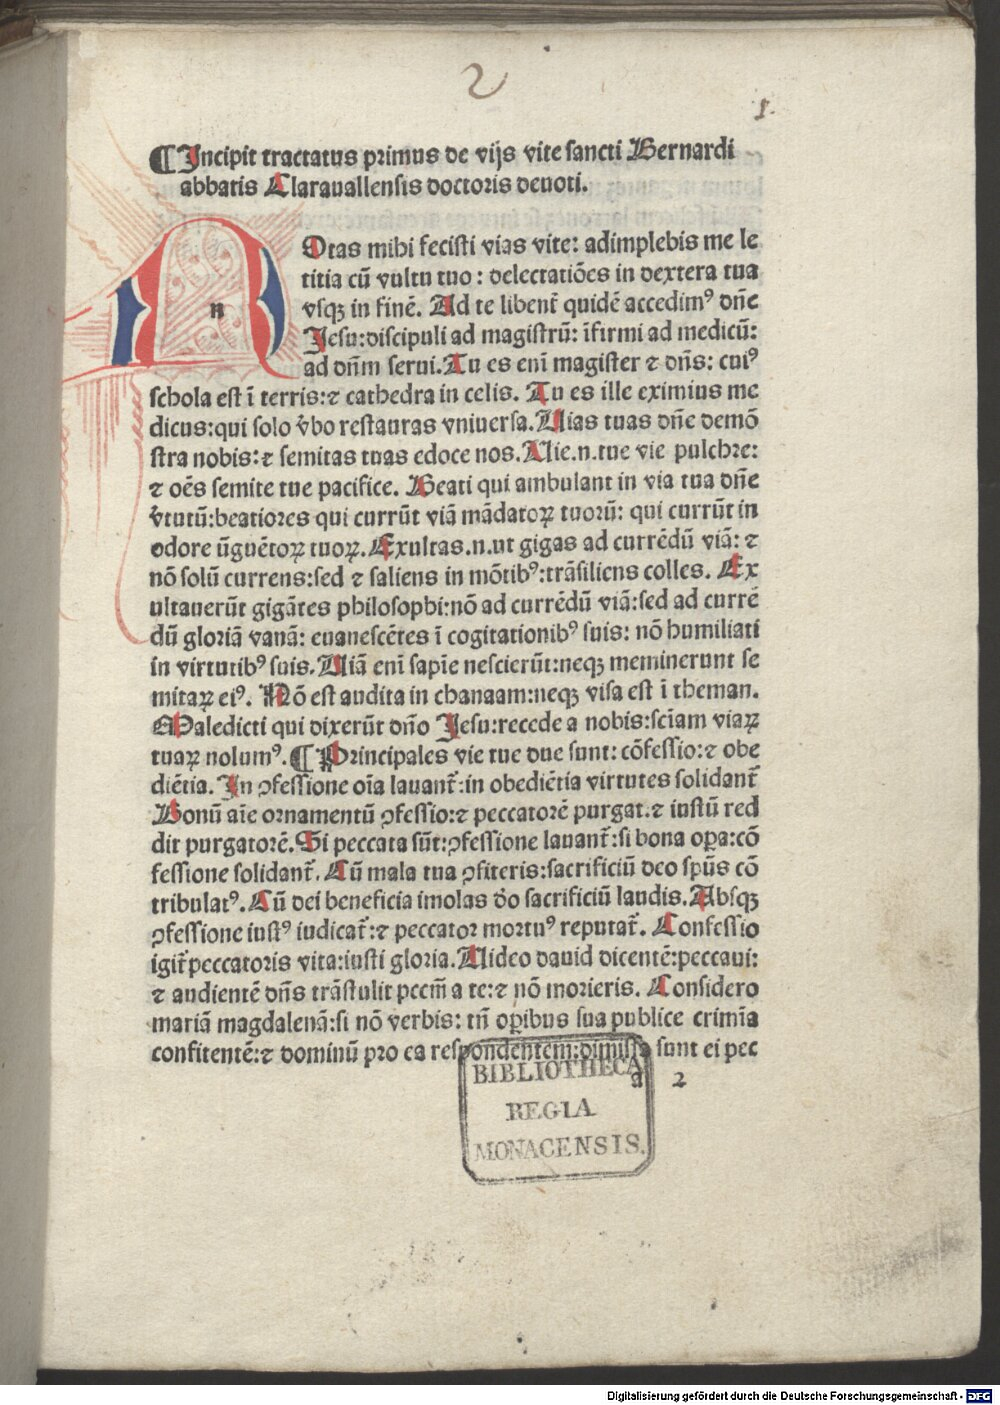 2
1.
¶ Incipit tractatus primus de vijs vite sancti Bernardi
abbatis Clarauallensis doctoris deuoti.
n Otas mihi fecisti vias vite: adimplebis me le
titia cū vultu tuo: delectatiōes in dextera tua
vsqꝫ in finē. Ad te libent̄ quidē accedimꝰ dn̄e
Jesu:discipuli ad magistrū: īfirmi ad medicū:
ad dn̄m serui. Tu es eni magister ⁊ dn̄s: cuiꝰ
schola est ī terris:⁊ cathedra in celis. Tu es ille eximius me
dicus:qui solo v̄bo restauras vniuersa. Uias tuas dn̄e demō
stra nobis:⁊ semitas tuas edoce nos. Uie.n.tue vie pulchre:
⁊ oēs semite tue pacifice. Beati qui ambulant in via tua dn̄e
v̄tutū:beatiores qui currūt viā mādatoꝝ tuorū: qui currūt in
odore ūguētoꝝ tuoꝝ. Exultas.n.ut gigas ad currēdū viā: ⁊
nō solū currens:sed ⁊ saliens in mōtibꝰ:trāsiliens colles. Ex
ultauerūt gigātes philosophi:nō ad currēdū viā:sed ad curre
dū gloriā vanā: euanescētes ī cogitationibꝰ suis: nō humiliati
in virtutibꝰ suis. Uiā eni sapīe nescierūt:neqꝫ meminerunt se
mitaꝝ eiꝰ. Nō est audita in chanaam:neqꝫ visa est ī theman.
Maledicti qui dixerūt dn̄o Jesu:recede a nobis:sciam viaꝝ
tuaꝝ nolumꝰ. ¶ Principales vie tue due sunt: cōfessio:⁊ obe
diētia. In ꝯfessione oīa lauant̄:in obediētia virtutes solidant̄
Bonū aīe ornamentū ꝯfessio:⁊ peccatorē purgat.⁊ iustū red
dit purgatorē. Si peccata sūt:ꝯfessione lauant̄:si bona oꝑa:cō
fessione solidant̄. Cū mala tua ꝯfiteris:sacrificiū deo spūs cō
tribulatꝰ. Cū dei beneficia imolas d̄o sacrificiū laudis. Absqꝫ
ꝯfessione iustꝰ iudicat̄:⁊ peccator mortuꝰ reputat̄. Confessio
igit̄ peccatoris vita:iusti gloria. Uideo dauid dicentē:peccaui:
⁊ audientē dn̄s trāstulit pcc̄m a te:⁊ nō morieris. Considero
mariā magdalenā:si nō verbis: tn̄ oꝑibus sua publice crimīa
confitentē:⁊ dominū pro ea respondentem:dimissa sunt ei pec
a 2
BIBLIOTHECA
REGIA
MONACENSIS.
Digitalisierung gefördert durch die Deutsche Forschungsgemeinschaft - DFG